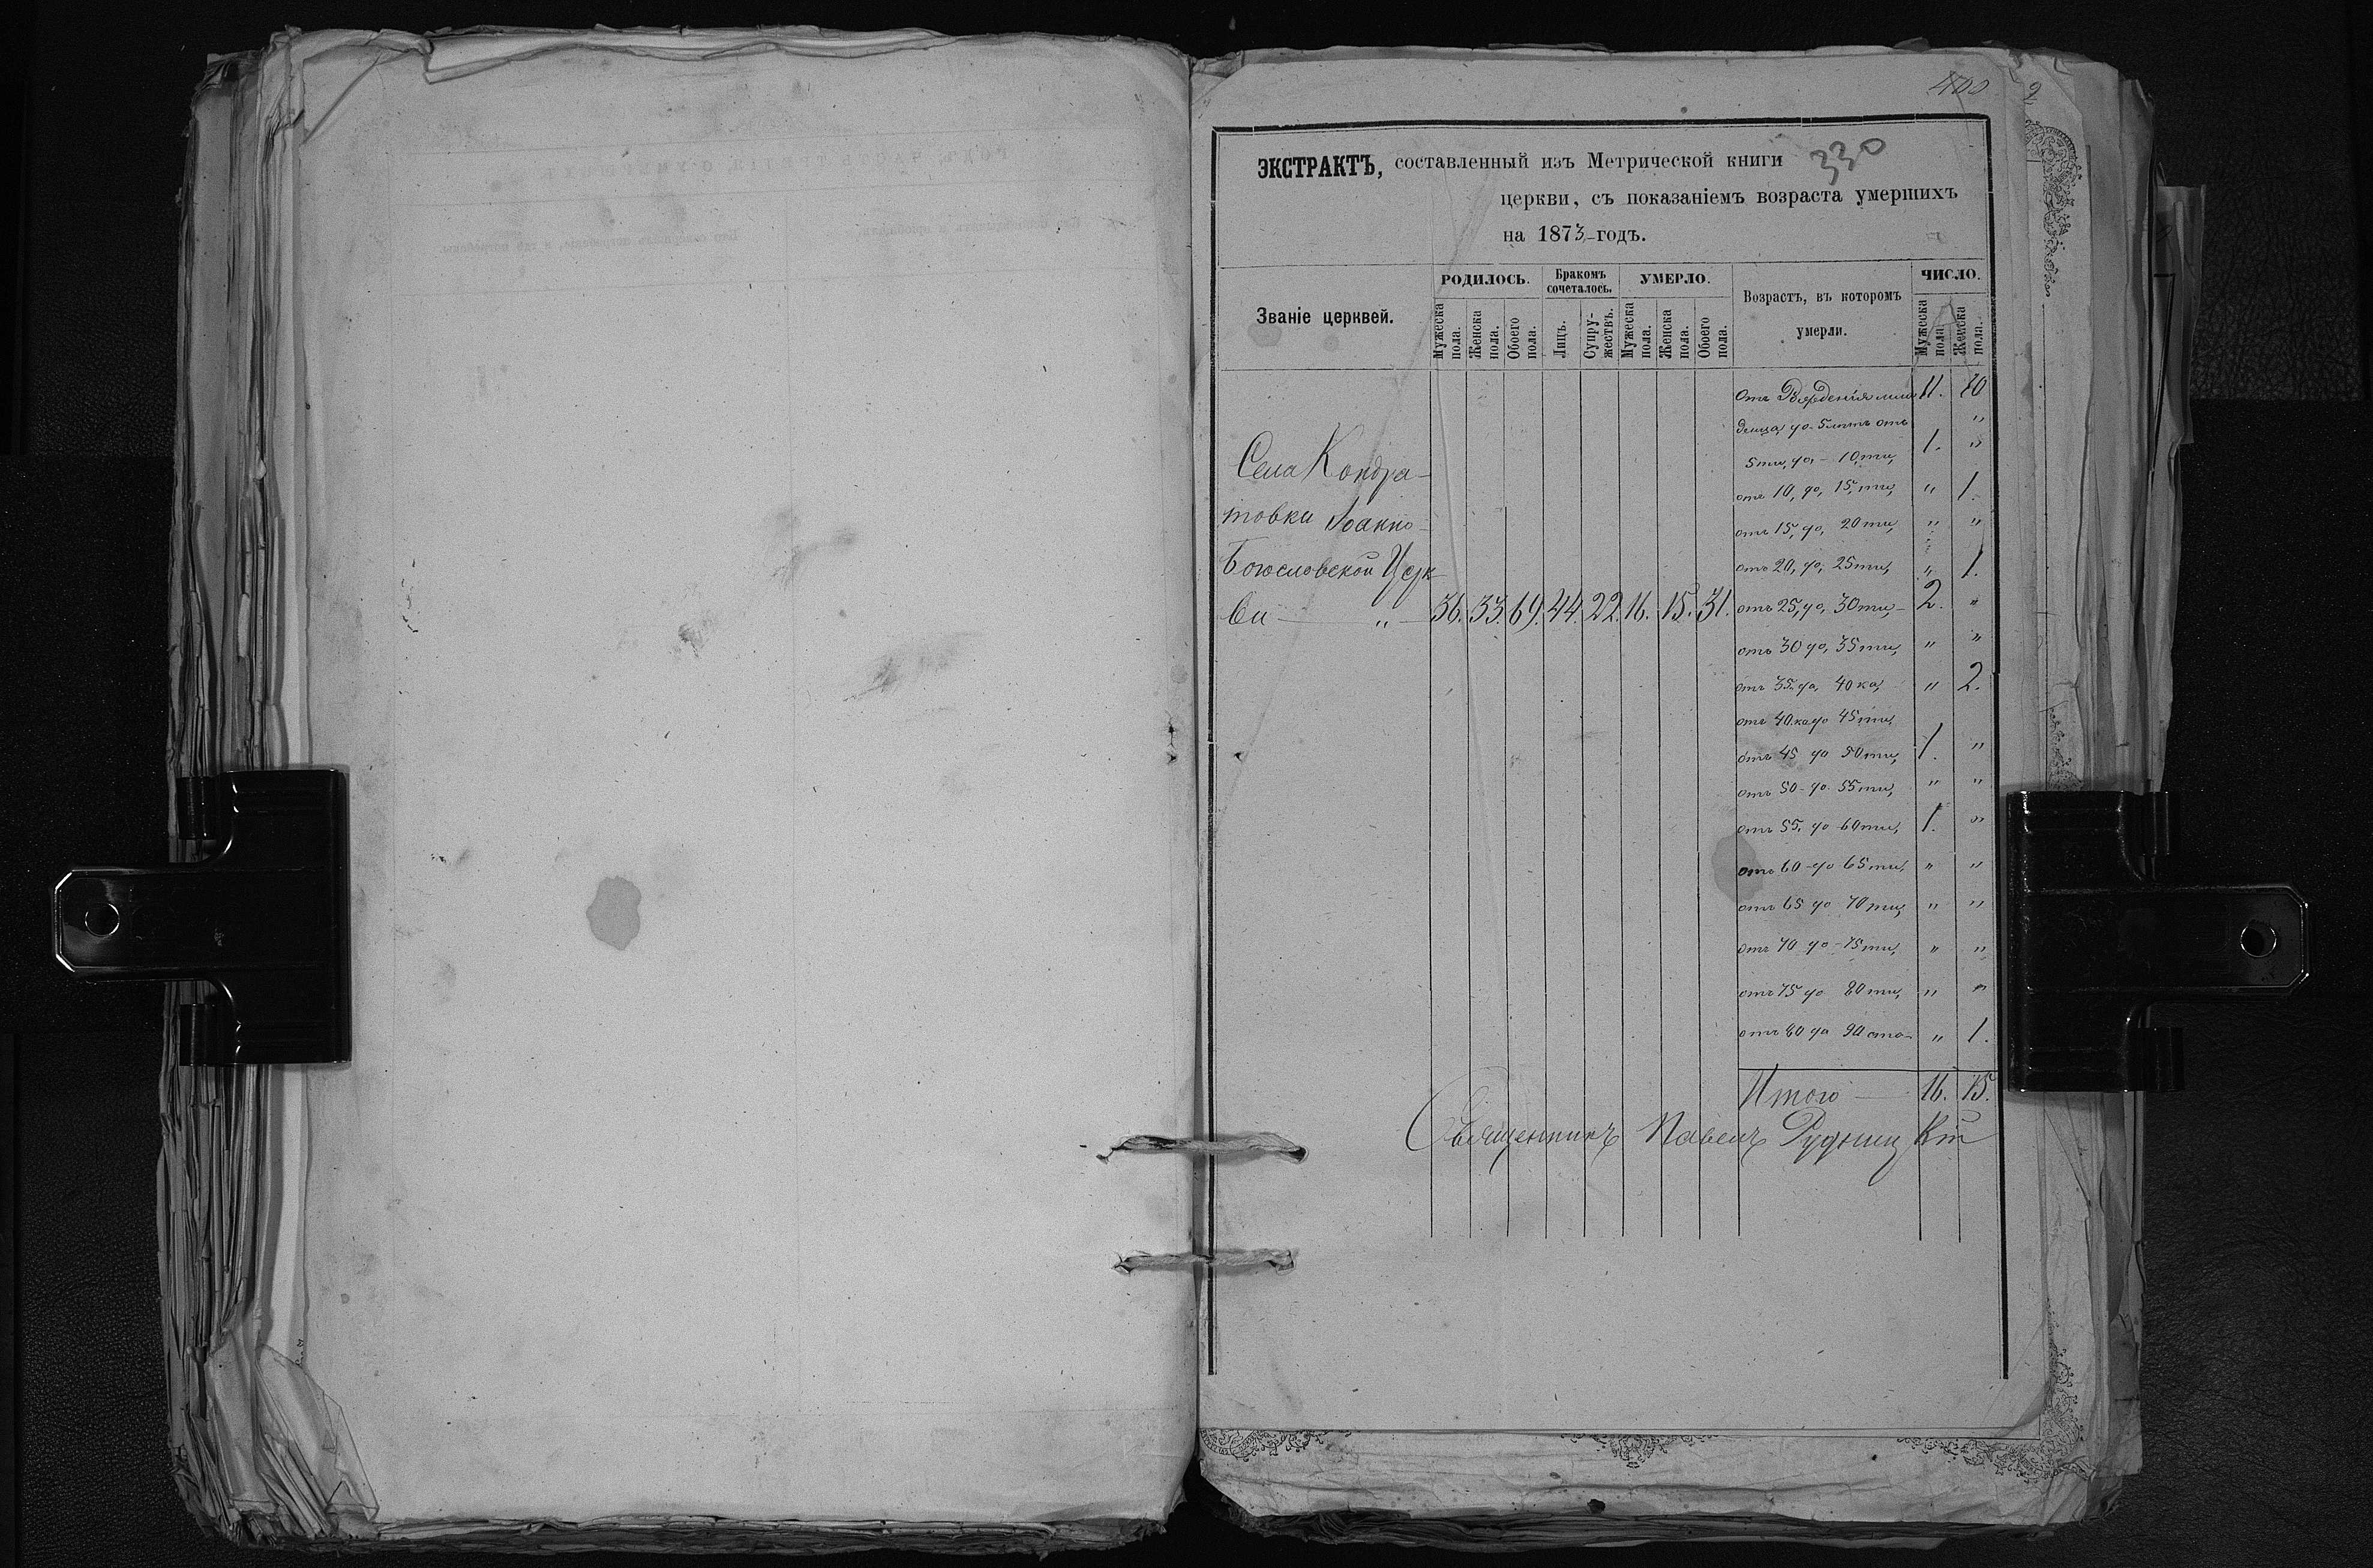 400
330
ЭКСТРАКТЪ, составленный изъ Метрической книги
церкви, съ показаніемъ возраста умершихъ
на 1873 годъ.
Званіе церквей.
РОДИЛОСЬ.
Мужеска пола.
Женска пола.
Обоего пола.
Бракомъ сочеталось.
Лицъ.
Супружествъ.
УМЕРЛО.
Мужеска пола.
Женска пола.
Обоего пола.
Возрастъ, въ которомъ
умерли.
ЧИСЛО.
Мужеска пола.
Женска пола.
Села Кондра-
товки Іоанно-
Богословской Церк-
ви — „ — 36. 33. 69. 44. 22. 16. 15. 31.
отъ Рожденія 11. 10
до 5 лѣтъ отъ "
5ти, до, - 10ти, 1. "
отъ 10, до, 15ти, " 1.
отъ 15, до, 20ти, " "
отъ 20, до, 25ти, " 1.
отъ 25, до, 30ти, - 2. "
отъ 30 до, 35ти, " "
отъ 35. до, 40ка, " 2.
отъ 40.ка до 45ти,
отъ 45 до 50ти, 1. "
отъ 50 - до 55ти, " "
отъ 55. до 60ти, 1. "
отъ 60 - до 65ти, " "
отъ 65 до 70ти, " "
отъ 70 до - 75ти, " "
отъ 75 до 80ти, " "
отъ 80 до 90сто - " 1.
Итого — 16. 15.
Священникъ Павелъ Рудницкій